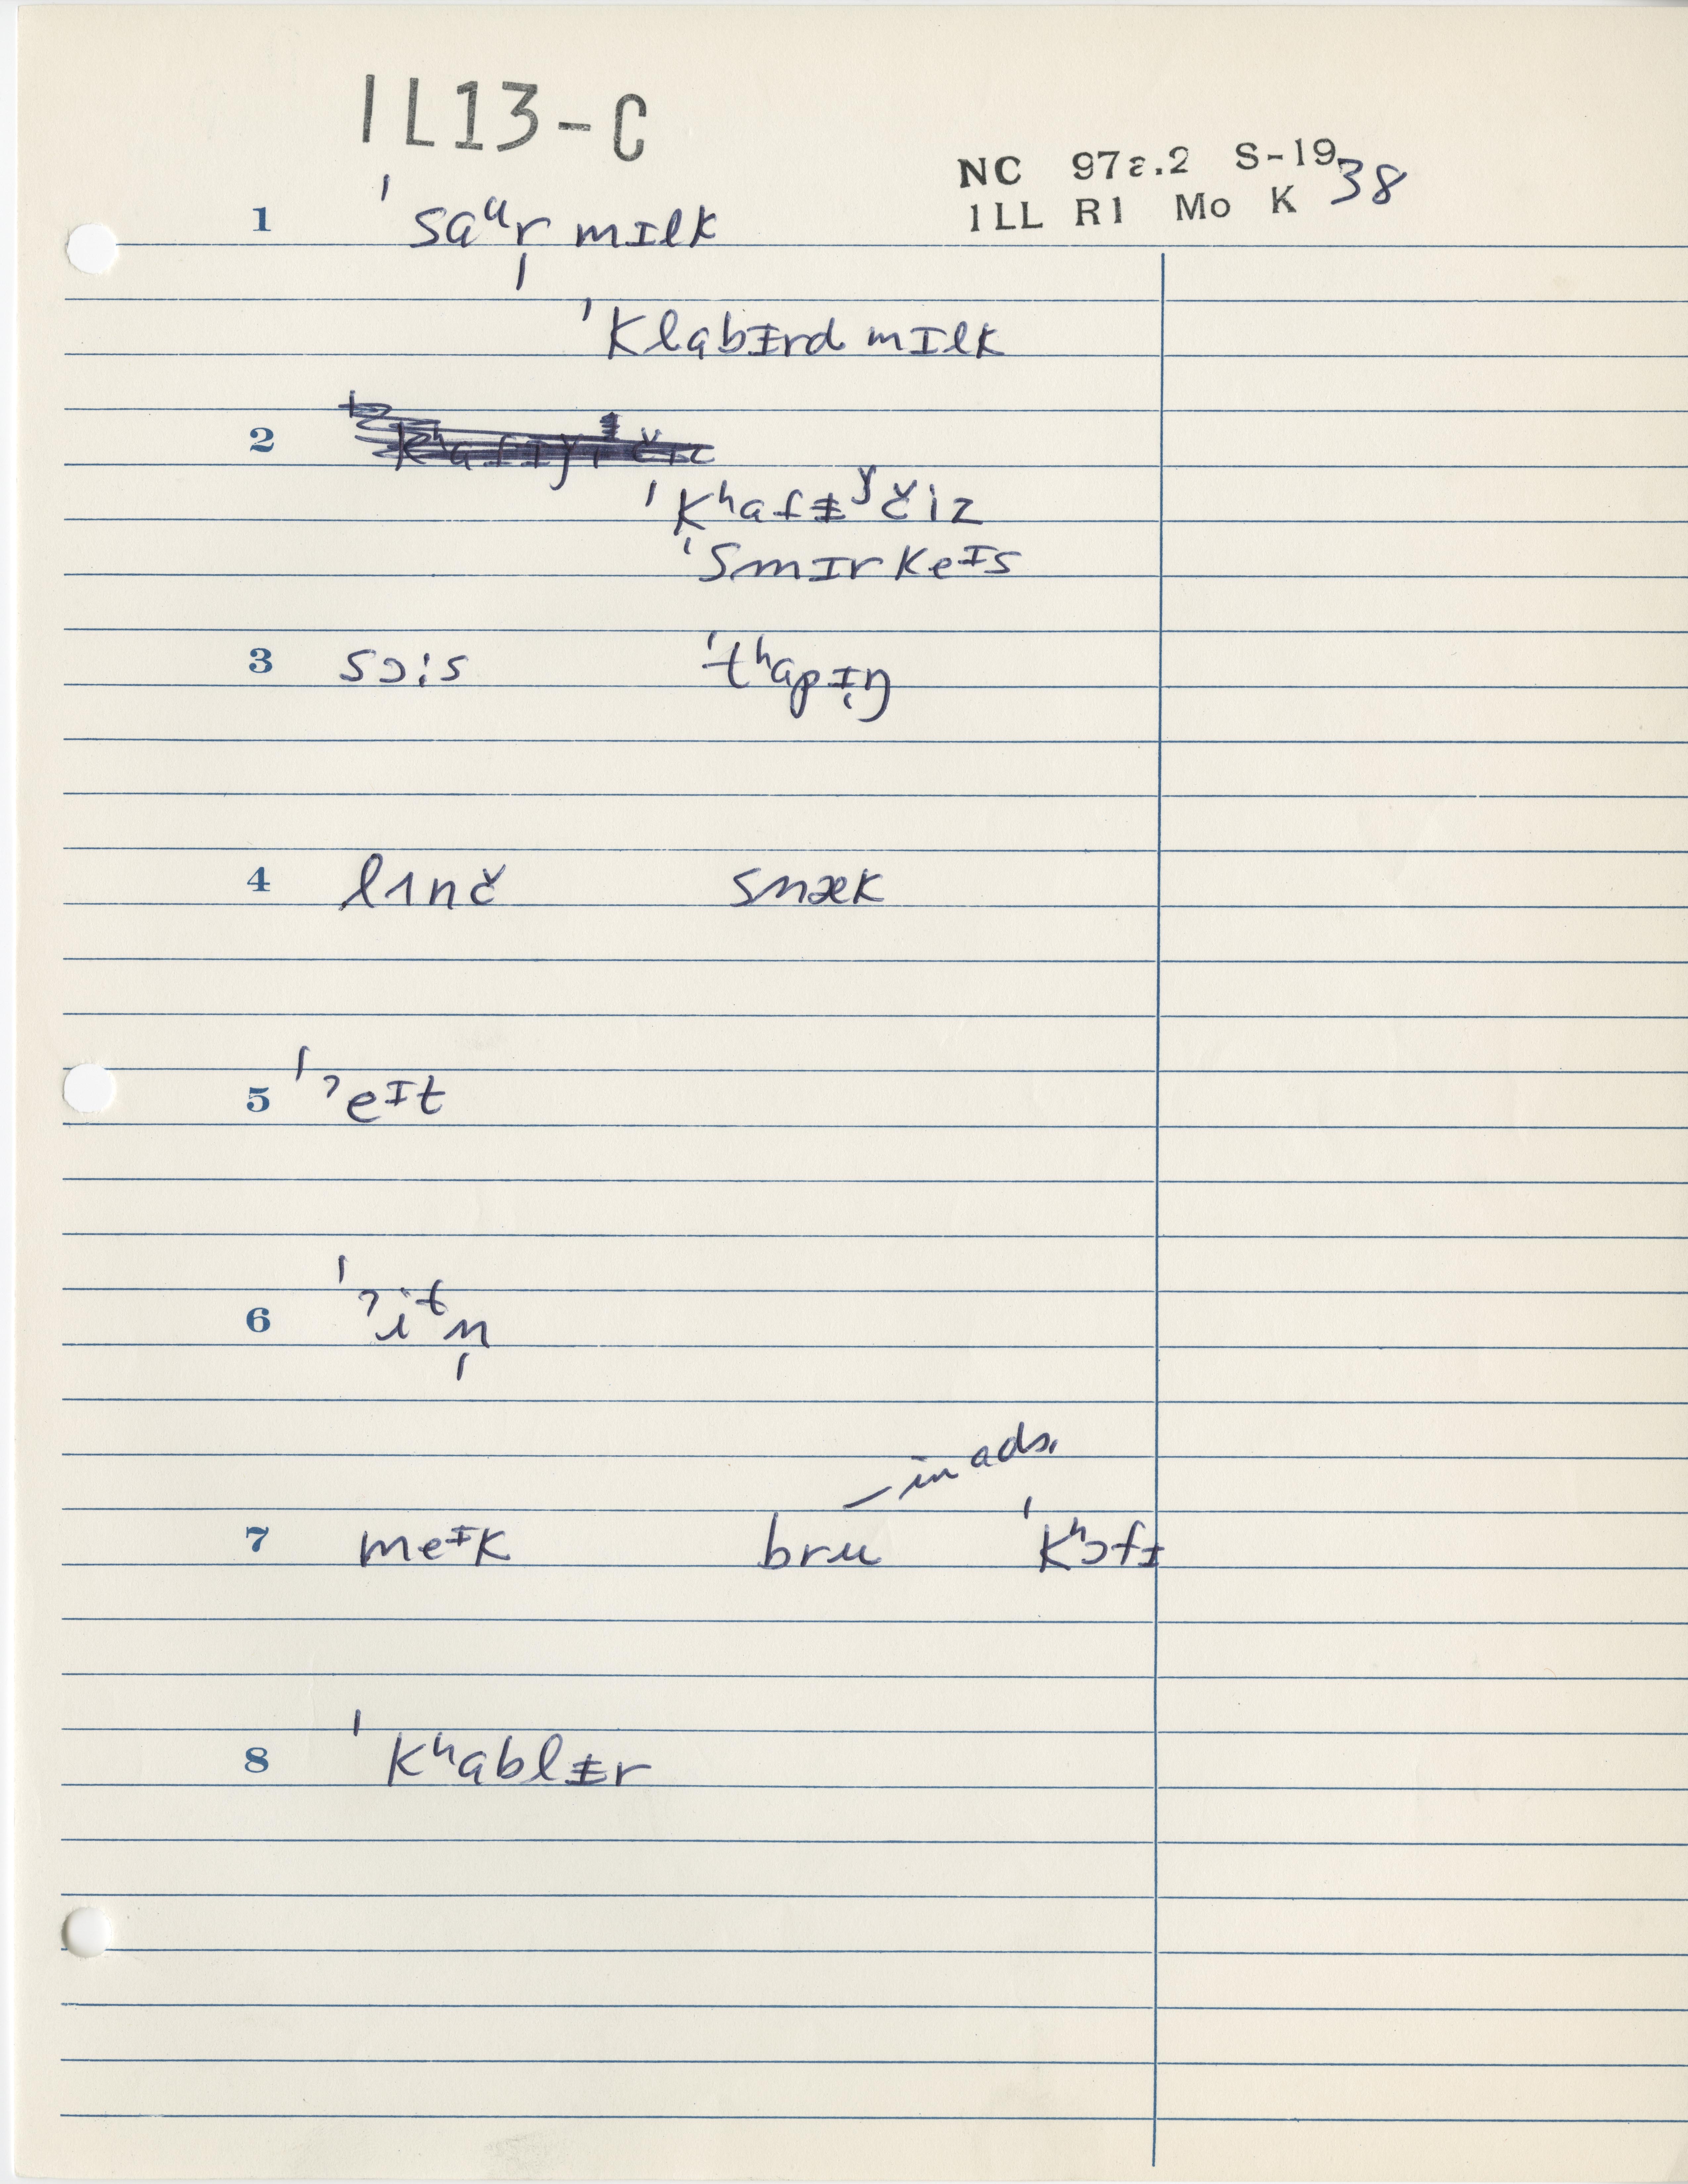 1L13-C
NC 97ε.2 S-1938
1LL R1 Mo K
1 ˈsaᵘr̩ mɪlk
ˈklabɨrd mɪlk
2
ˈkʰafɨʸčiz
ˈsmɪrkeᴵs
3 sɔis ˈtʰapɪŋ
4 lʌnč snæk
5 ˈʔeᴵt
6 ˈʔitn̩
in ads.
7 meᴵk bru ˈkʰɔfɨ
8 ˈkʰablɨr